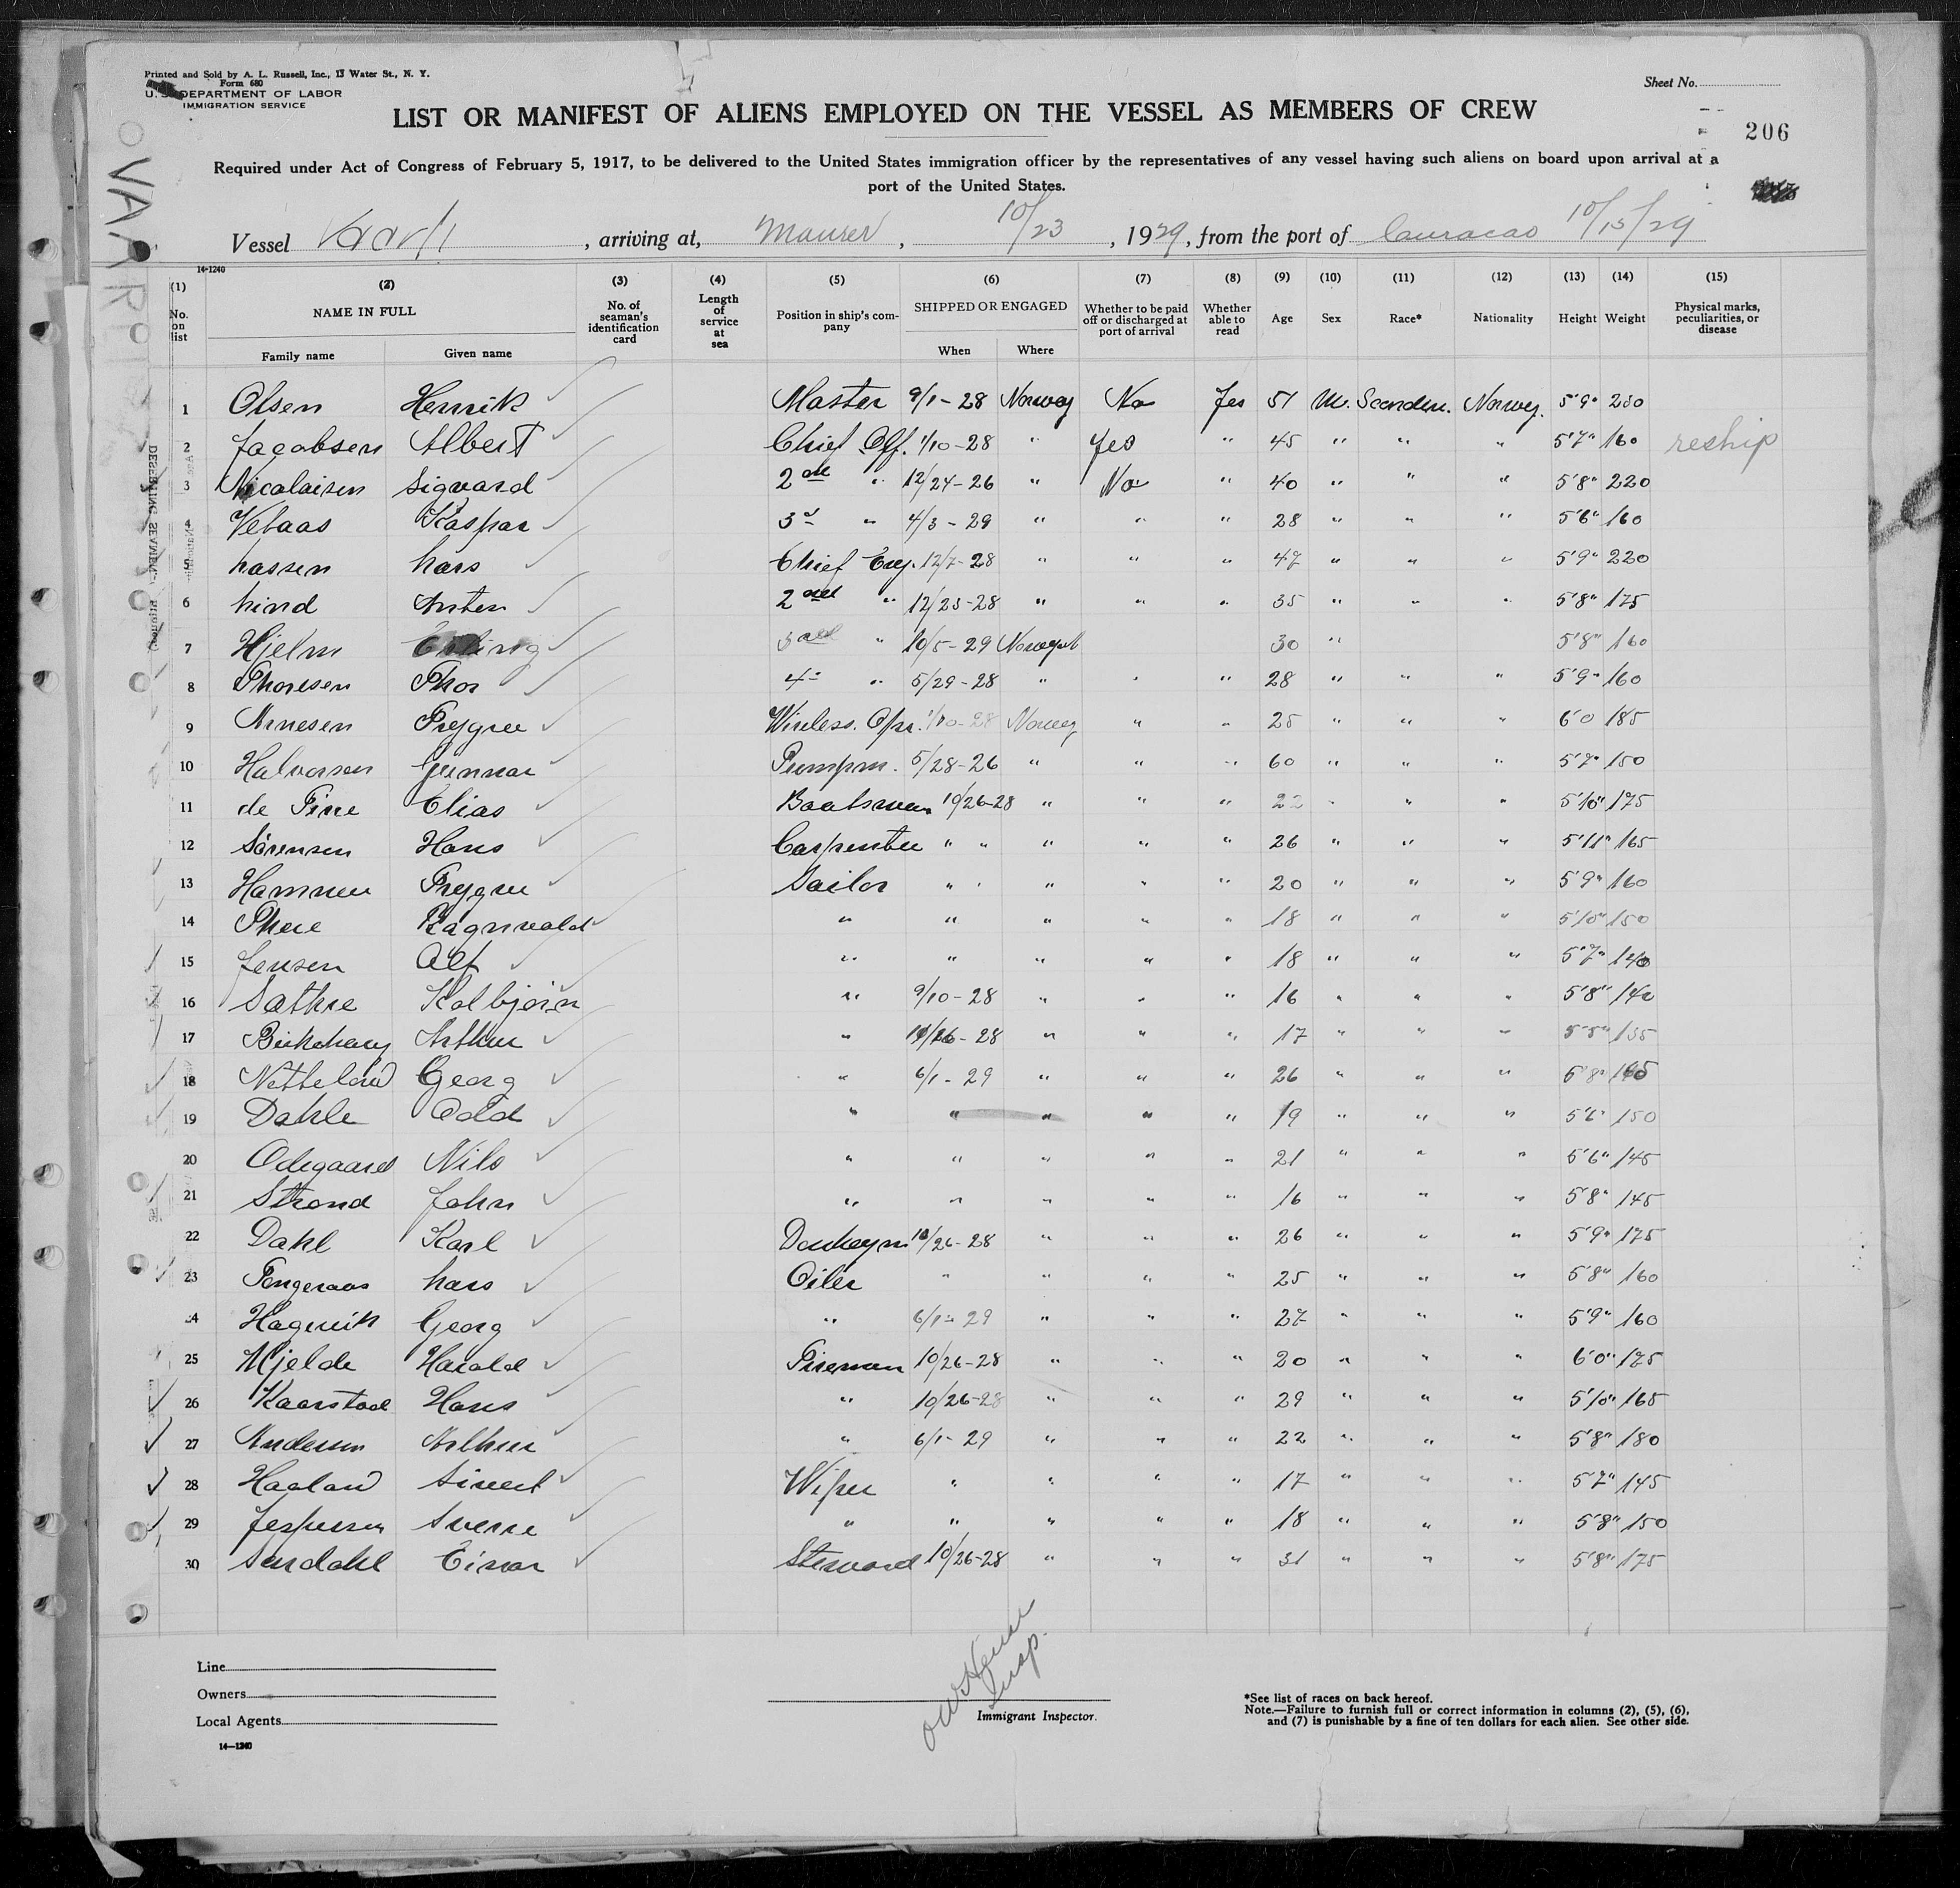 Printed and Sold by A. L. Russell, Inc., 13 Water St., N. Y.
Form 680
U. S. DEPARTMENT OF LABOR
IMMIGRATION SERVICE
Sheet No.
LIST OR MANIFEST OF ALIENS EMPLOYED ON THE VESSEL AS MEMBERS OF CREW
206
Required under Act of Congress of February 5, 1917, to be delivered to the United States immigration officer by the representatives of any vessel having such aliens on board upon arrival at a
port of the United States.
Vessel Vaarli, arriving at, Maurer, 10/23, 1929, from the port of Curacao 10/15/29
14-1240
(1) (2) (3) (4) (5) (6) (7) (8) (9) (10) (11) (12) (13) (14) (15)
No. on list NAME IN FULL No. of seaman's identification card Length of service at sea Position in ship's company SHIPPED OR ENGAGED Whether to be paid off or discharged at port of arrival Whether able to read Age Sex Race* Nationality Height Weight Physical marks, peculiarities, or disease
Family name Given name When Where
1 Olsen Henrik Master 9/1-28 Norway No Yes 51 M. Scandin. Norweg. 5'9" 230
2 Jacobsen Albert Chief Off. 1/10-28 " Yes " 45 " " " 5'7" 160 reship
3 Nicolaisen Sigvard 2nd " 12/24-26 " No " 40 " " " 5'8" 220
4 Vebaas Kaspar 3d " 4/3-29 " " " 28 " " " 5'6" 160
5 Lassen Lars Chief Eng. 12/7-28 " " " 47 " " " 5'9" 220
6 Lind Anten 2nd " 12/23-28 " " " 35 " " " 5'8" 175
7 Hjelm Erling 3rd " 10/5-29 30 " 5'8" 160
8 Thoresen Thor 4 " 5/29-28 " " " 28 " " " 5'9" 160
9 Arnesen Trygve Wireless. Opr. 1/10-28 Norway " " 25 " " " 6'0 185
10 Halvorsen Gunnar Pumpm. 5/28-26 " " " 60 " " " 5'7" 150
11 de Fine Elias Boatsman 10/26-28 " " " 22 " " " 5'10" 175
12 Sörensen Hans Carpenter " " " " " 26 " " " 5'11" 165
13 Hammer Trygve Sailor " " " " " 20 " " " 5'9" 160
14 Ragnvald " " " " " 18 " " " 5'10" 150
15 Jensen Alf " " " " " 18 " " " 5'7" 140
16 Sathre Kolbjörn " 9/10-28 " " " 16 " " " 5'8" 140
17 Arthur " 10/26-28 " " " 17 " " " 5'5" 135
18 Netteland Georg " 6/1-29 " " " 26 " " " 5'8" 165
19 Dahle Odd " " " " " 19 " " " 5'6" 150
20 Odegaard Nils " " " " " 21 " " " 5'6" 145
21 Strond John " " " " " 16 " " " 5'8" 145
22 Dahl Karl Donkeym 10/26-28 " " " 26 " " " 5'9" 175
23 Tengeraas Lars Oiler " " " " 25 " " " 5'8" 160
24 Hagevik Georg " 6/1-29 " " " 27 " " " 5'9" 160
25 Mjelde Harald Fireman 10/26-28 " " " 20 " " " 6'0" 175
26 Kaarstad Hans " 10/26-28 " " " 29 " " " 5'10" 165
27 Andersen Arthur " 6/1-29 " " " 22 " " " 5'8" 180
28 Haaland Sivert Wiper " " " " 17 " " " 5'7" 145
29 Jespersen Sverre " " " " " 18 " " " 5'8" 150
30 Sandahl Einar Steward 10/26-28 " " " 31 " " " 5'8" 175
Line
Owners
Local Agents
14-1240
Insp.
Immigrant Inspector.
*See list of races on back hereof.
Note.—Failure to furnish full or correct information in columns (2), (5), (6),
and (7) is punishable by a fine of ten dollars for each alien. See other side.